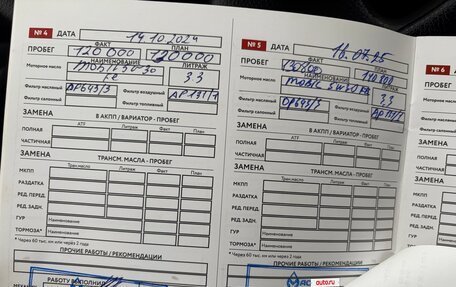 № 4 ДАТА 14.10.2024
ФАКТ ПЛАН
ПРОБЕГ 120 000 120000
НАИМЕНОВАНИЕ ЛИТРАЖ
Моторное масло 3.3
Фильтр масляный OP643/3 Фильтр воздушный AP 131/1
Фильтр салонный Фильтр топливный
ЗАМЕНА В АКПП / ВАРИАТОР - ПРОБЕГ
ATF Литраж Факт План
ПОЛНАЯ
ЧАСТИЧНАЯ
ЗАМЕНА ТРАНСМ. МАСЛА - ПРОБЕГ
Тран.масло Литраж Факт План
МКПП
РАЗДАТКА
РЕД. ПЕРЕД.
РЕД. ЗАДН.
ГУР Наименование
ТОРМОЗА* Наименование
* Через 60 тыс. км или через 2 года
ПРОЧИЕ РАБОТЫ / РЕКОМЕНДАЦИИ
РАБОТУ ВЫПОЛНИЛ
№ 5 ДАТА 16.07.25
ФАКТ ПЛАН
ПРОБЕГ 130600
НАИМЕНОВАНИЕ ЛИТРАЖ
Моторное масло 3.3
Фильтр масляный OP643/3 Фильтр воздушный
Фильтр салонный Фильтр топливный
ЗАМЕНА В АКПП / ВАРИАТОР - ПРОБЕГ
ATF Литраж Факт План
ПОЛНАЯ
ЧАСТИЧНАЯ
ЗАМЕНА ТРАНСМ. МАСЛА - ПРОБЕГ
Тран.масло Литраж Факт План
МКПП
РАЗДАТКА
РЕД. ПЕРЕД.
РЕД. ЗАДН.
ГУР Наименование
ТОРМОЗА* Наименование
* Через 60 тыс. км или через 2 года
ПРОЧИЕ РАБОТЫ / РЕКОМЕНДАЦИИ
№ 6
ПРОБЕГ
Моторное масло
Фильтр масляный
Фильтр салонный
ЗАМЕНА
ПОЛНАЯ
ЧАСТИЧНАЯ
ЗАМЕНА
МКПП
РАЗДАТКА
auto.ru